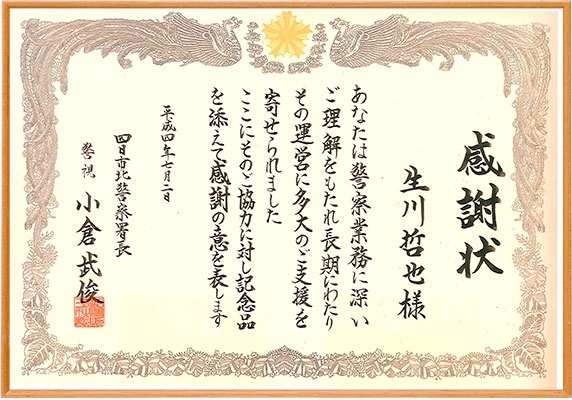 感謝状
生川哲也様
あなたは警察業務に深い
ご理解をもたれ長期にわたり
その運営に多大のご支援を
寄せられました
ここにそのご協力に対し記念品
を添えて感謝の意を表します
平成四年七月二日
四日市北警察署長
警視 小倉武俊